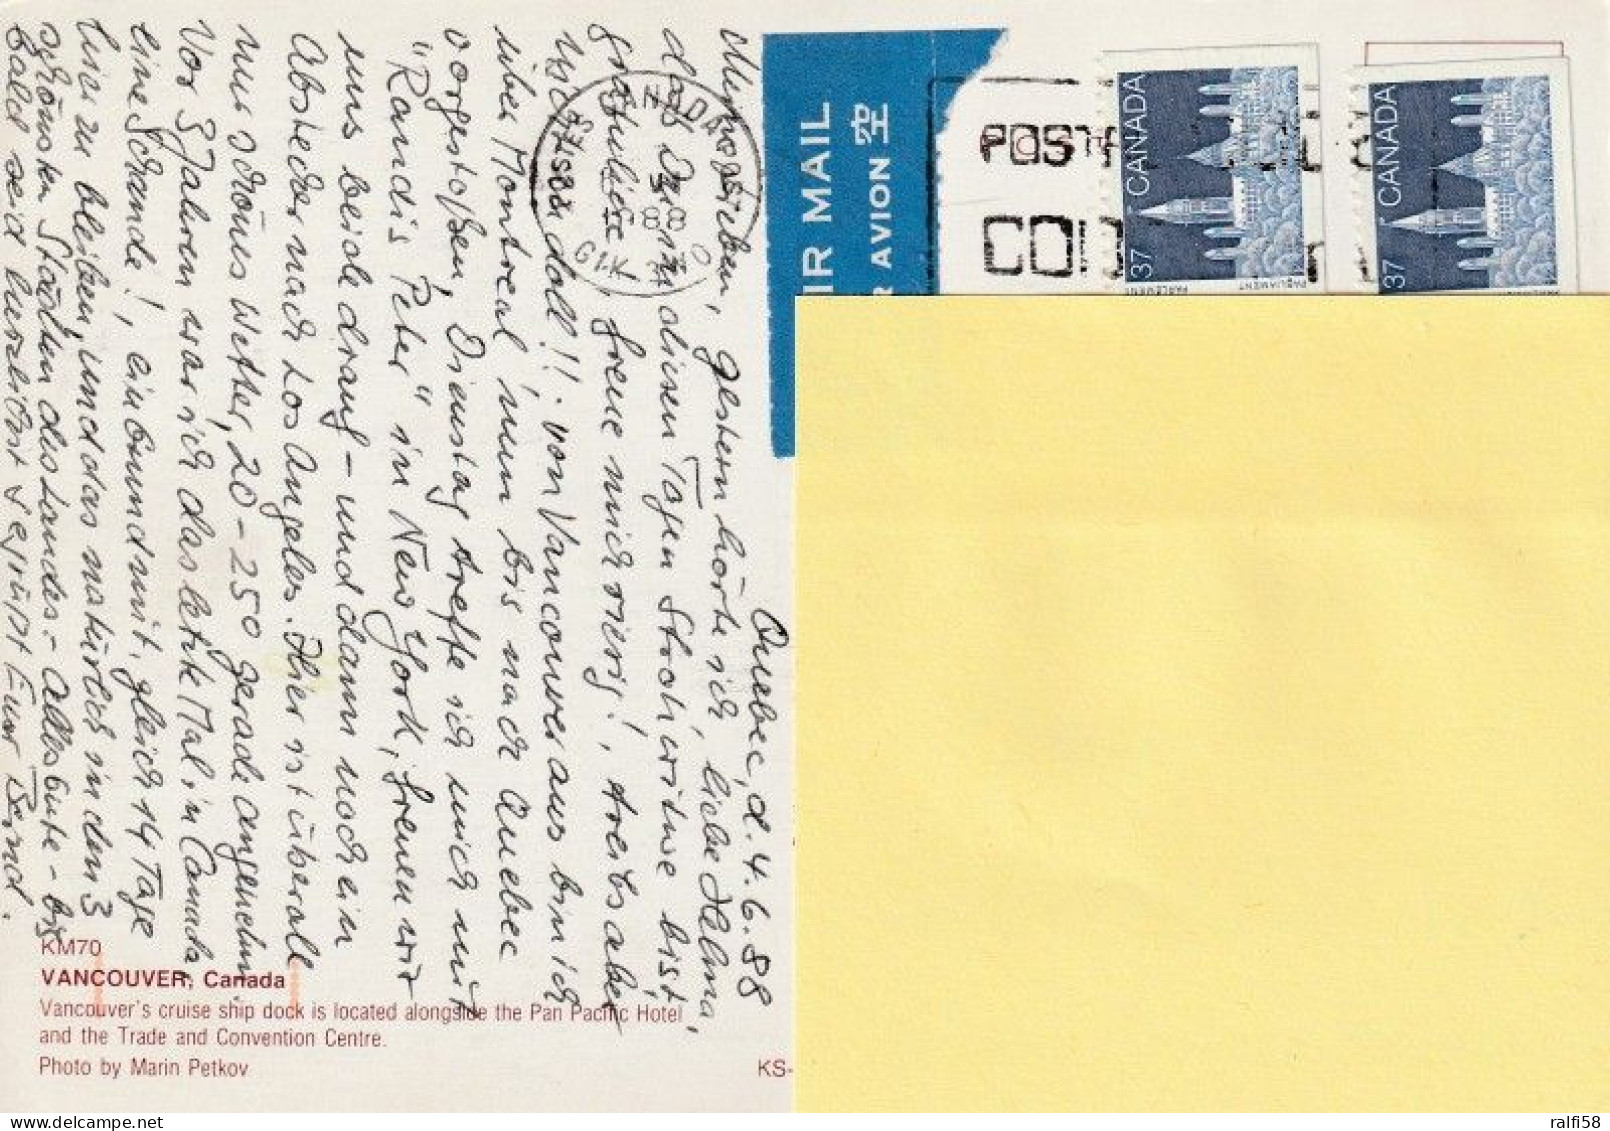 Quebec, d. 4.6.88
Ihr Lieben, gestern hörte ich, liebe Helma,
daß Du in diesen Tagen Strohwitwe bist,
freue mich riesig!, treibs aber
nicht zu doll!! von Vancouver aus bin ich
über Montreal nun bis nach Quebec
vorgestoßen, Dienstag treffe ich mich mit
"Randis Peter" in New York, freuen wir
uns beide drauf - und dann noch ein
Abstecher nach Los Angeles. Hier ist überall
nur schönes Wetter, 20-25° gerade angenehm.
Vor 9 Jahren war ich das letzte Mal in Canada,
eine Schande!, ein Grund mit, gleich 14 Tage
hier zu bleiben, und das natürlich in den 3
schönsten Städten des Landes - alles Gute - bis
bald seid herzlichst gegrüßt Euer Bernd.
KM70
VANCOUVER, Canada
Vancouver's cruise ship dock is located alongside the Pan Pacific Hotel
and the Trade and Convention Centre.
Photo by Marin Petkov
KS-
AIR MAIL
PAR AVION 空
CANADA
1988
G1K
POST
CODE
CANADA 37
PARLIAMENT
PARLEMENT
CANADA 37
ralfi58